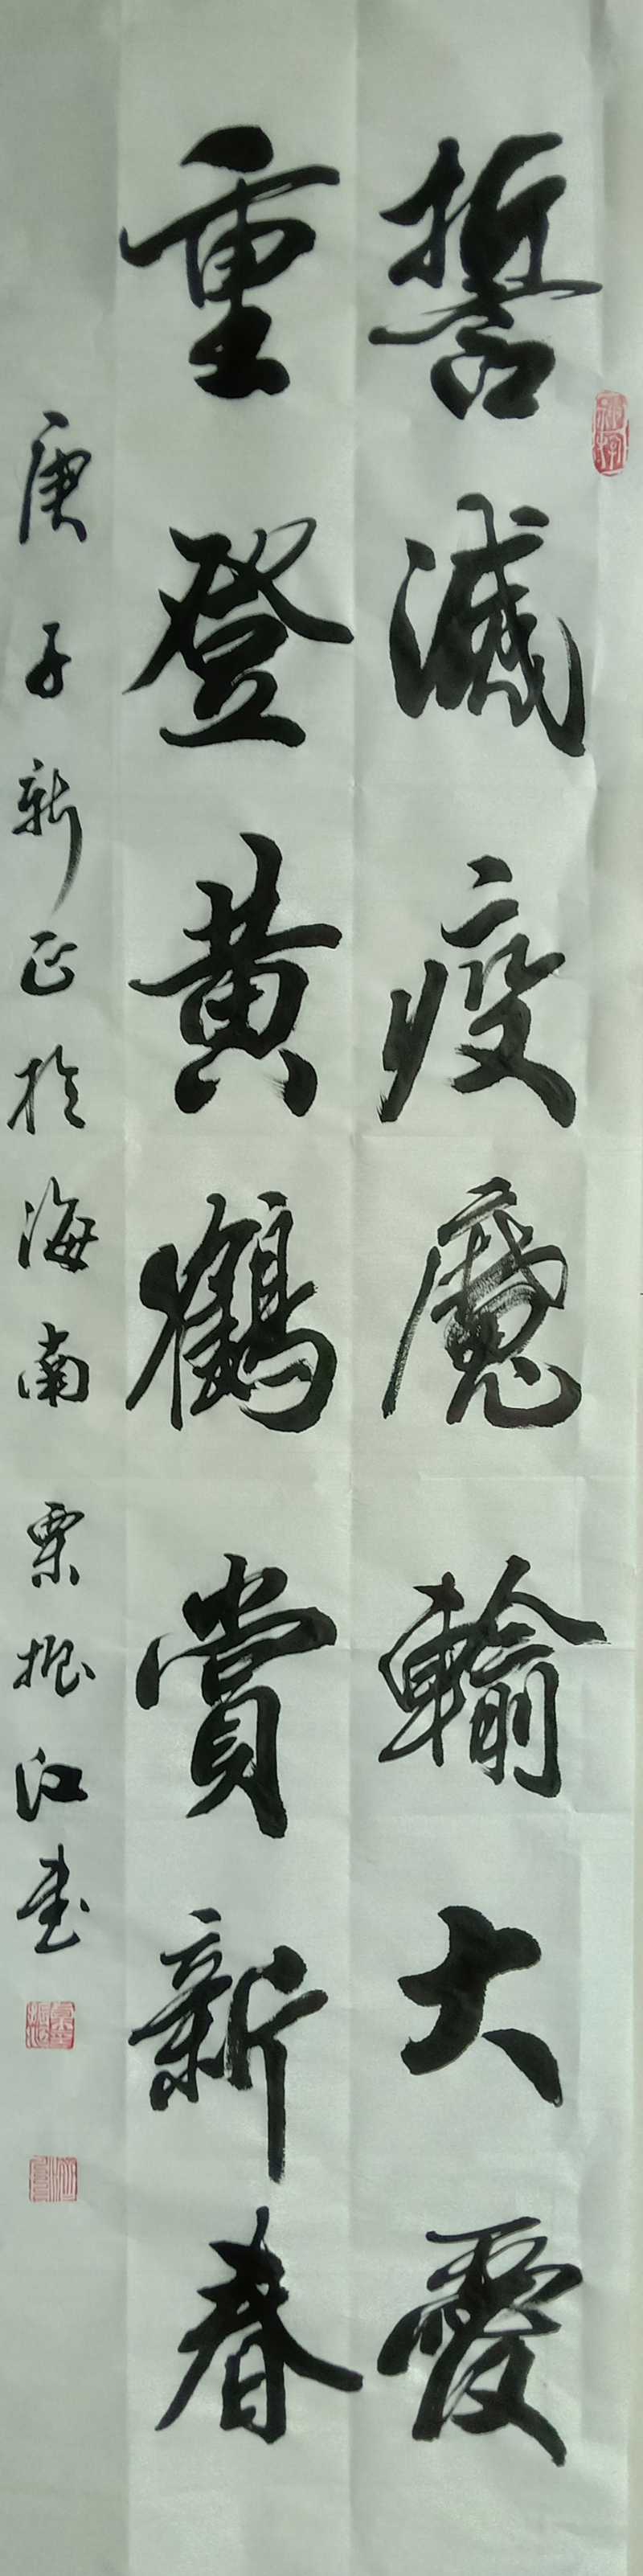 誓滅疫魔輸大愛
重登黄鶴賞新春
庚子新正於海南 栗振江書